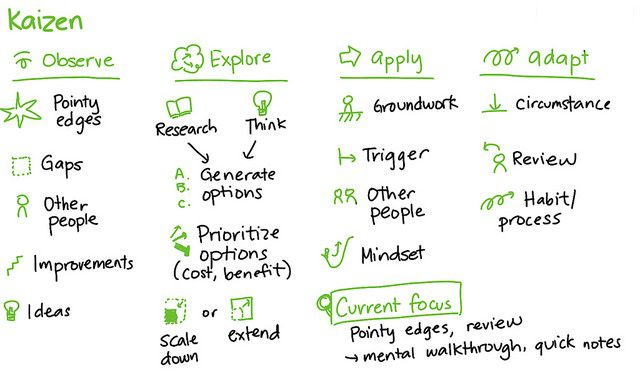 Kaizen
Observe
Pointy
edges
Gaps
Other
people
Improvements
Ideas
Explore
Research
Think
A.
B.
C.
Generate
options
Prioritize
options
(cost, benefit)
scale
down
or
extend
apply
Groundwork
Trigger
Other
people
Mindset
adapt
Circumstance
Review
Habit/
process
Current focus
Pointy edges, review
→ mental walkthrough, quick notes